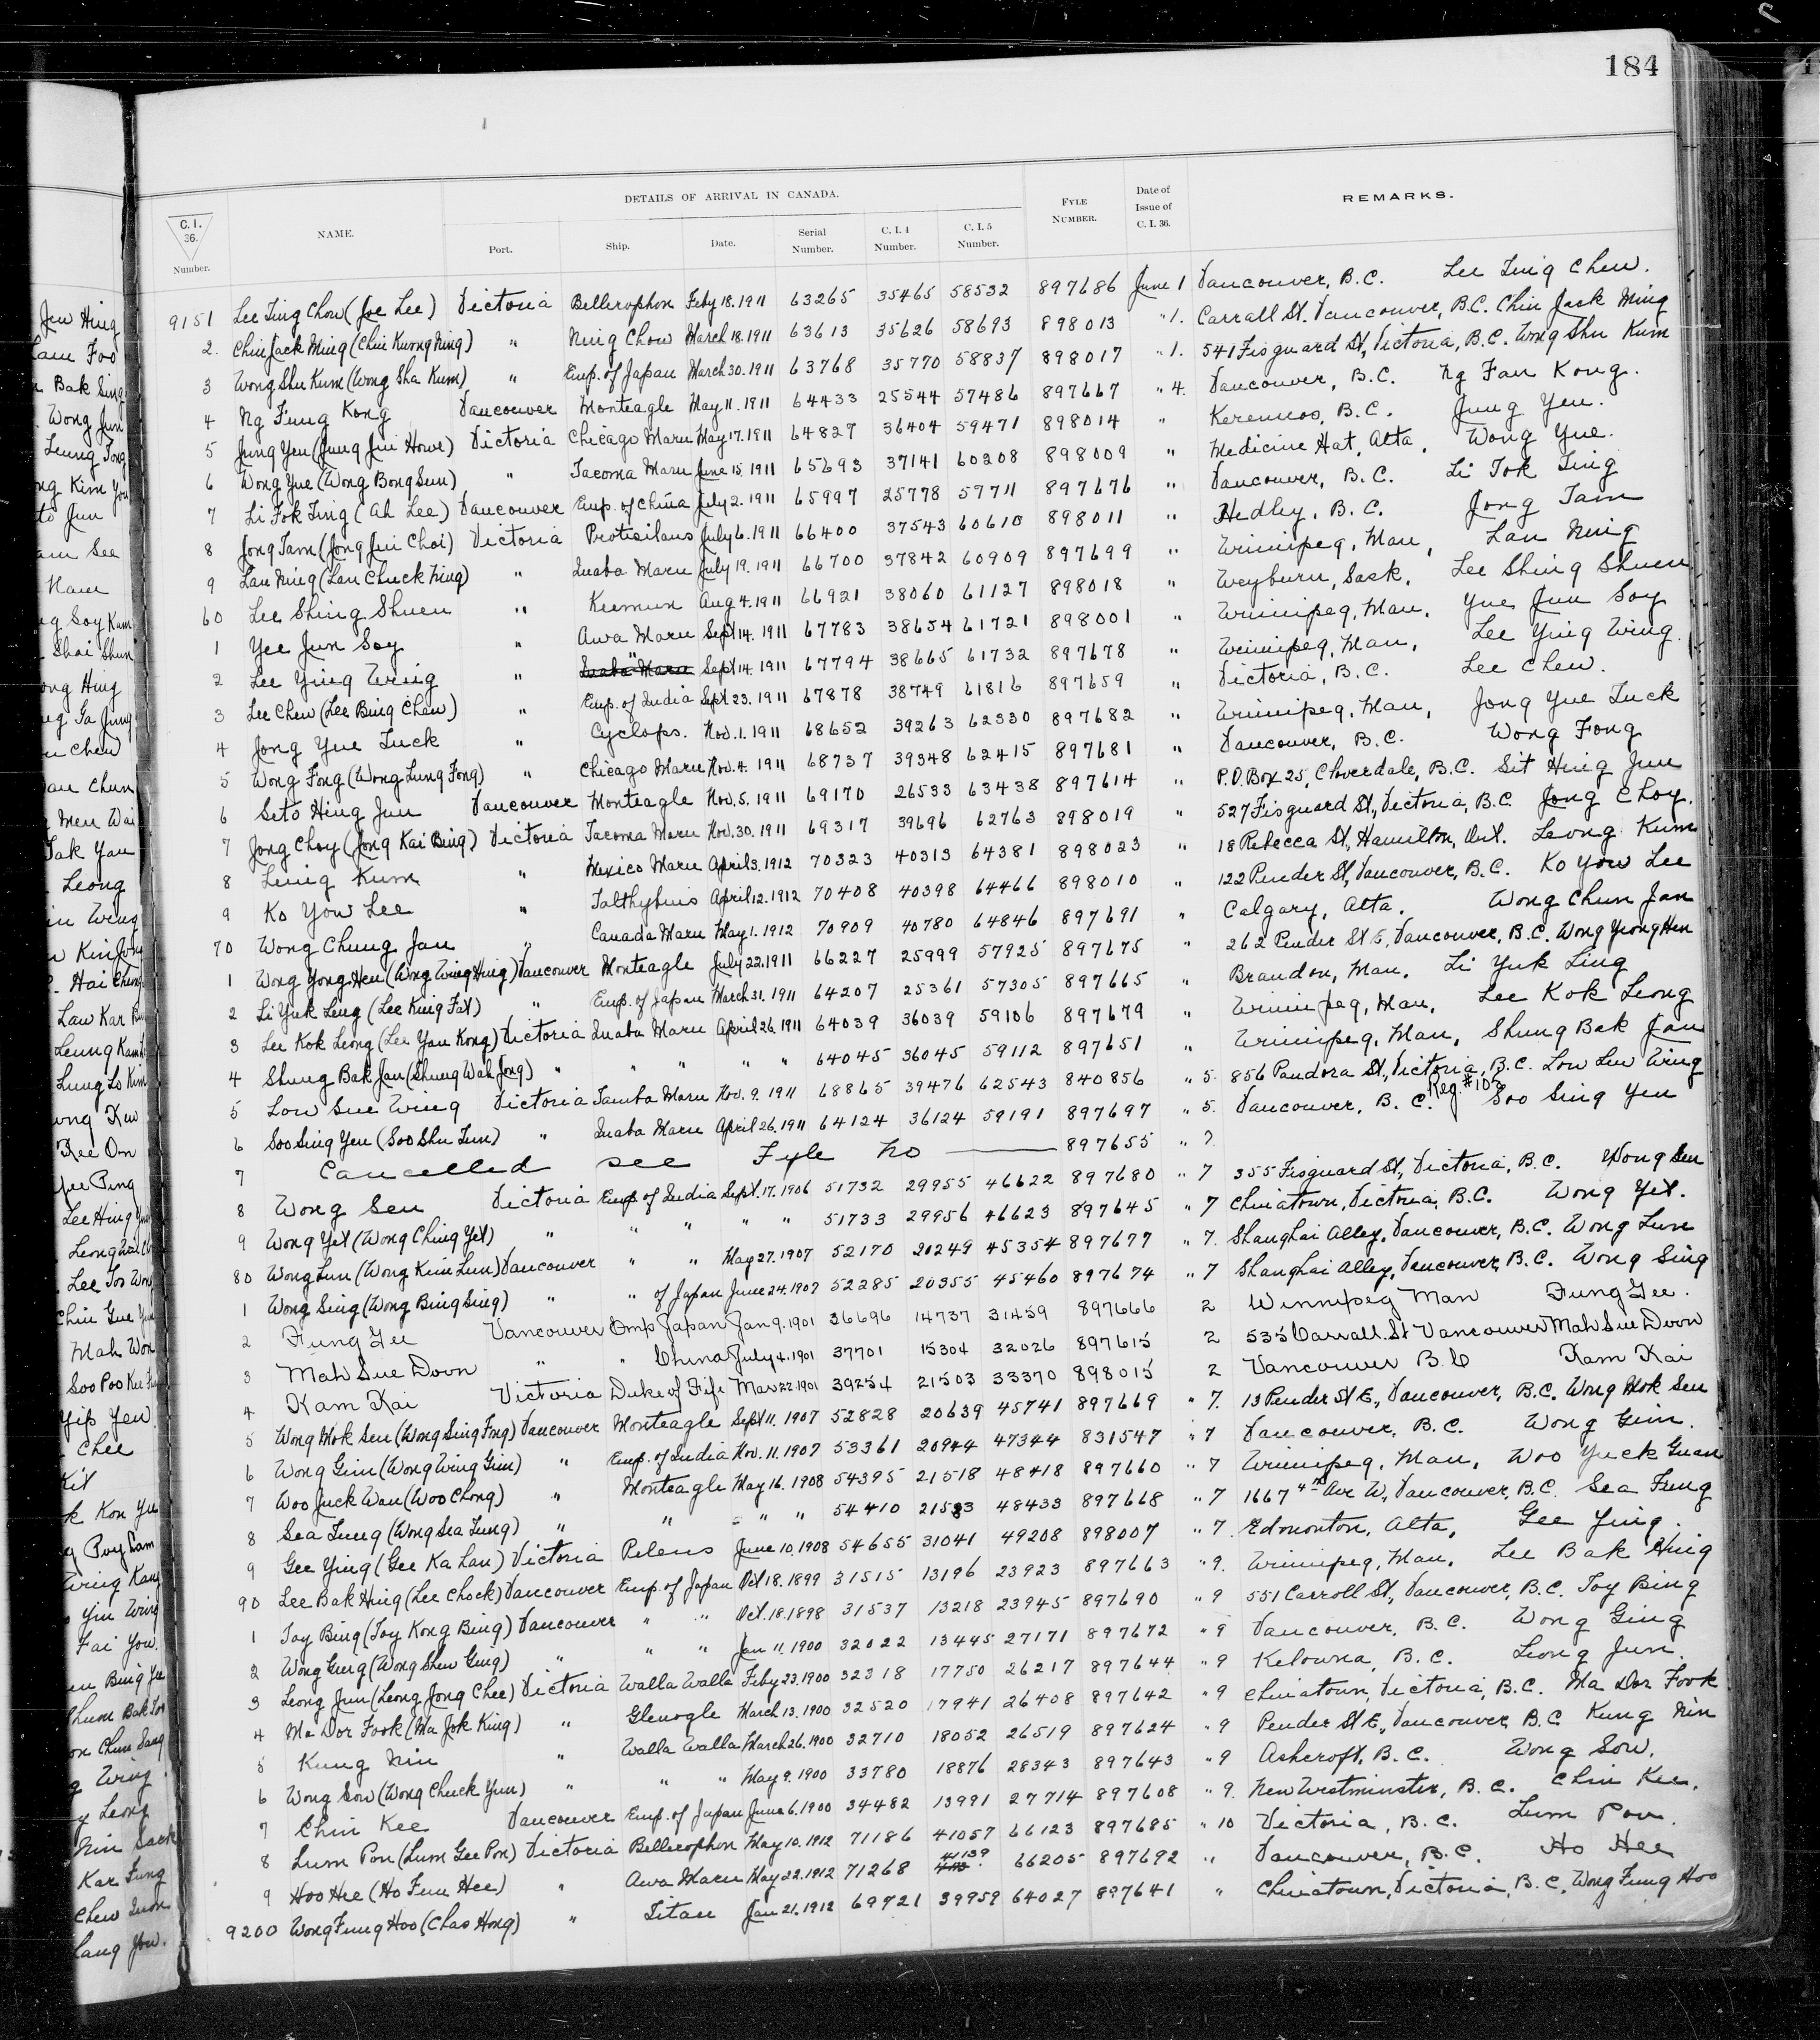 184
C. I. 36. Number.
NAME.
DETAILS OF ARRIVAL IN CANADA.
Port.
Ship.
Date.
Serial Number.
C. I. 4 Number.
C. I. 5 Number.
FYLE NUMBER.
Date of Issue of C. I. 36.
REMARKS.
9151 Lee Ting Chou (Joe Lee) Victoria Bellerophon Feby 18. 1911 63265 35465 58532 897686 June 1 Vancouver, B.C. Lee Ting Chew.
2. Chin Jack Ming (Chin Kwong Ning) " Ning Chow March 18. 1911 63613 35626 58693 898013 " 1. Carrall St. Vancouver, B.C. Chin Jack Ming
3 Wong Shu Kum (Wong Sha Kum) " Emp. of Japan March 30. 1911 63768 35770 58837 898017 " 1. 541 Fisguard St, Victoria, B.C. Wong Shu Kum
4 Ng Fung Kong Vancouver Monteagle May 11. 1911 64433 25544 57486 897667 " 4. Vancouver, B.C. Ng Fan Kong.
5 Jung Yeu (Jung Jui Howe) Victoria Chicago Maru May 17. 1911 64827 36404 59471 898014 " Keremeos, B.C. Jung Yeu.
6 Wong Yue (Wong Bong Sun) " Tacoma Maru June 15 1911 65693 37141 60208 898009 " Medicine Hat, Alta, Wong Yue.
7 Li Fok Ting (Ah Lee) Vancouver Emp. of China July 2. 1911 65997 25778 57711 897676 " Vancouver, B.C. Li Tok Ting
8 Jong Tam (Jong Jui Choi) Victoria Protesilaus July 6. 1911 66400 37543 60610 898011 " Hedley, B.C. Jong Tam
9 Lau Ning (Lau Chuck Ning) " Inaba Maru July 19. 1911 66700 37842 60909 897699 " Winnipeg, Man, Lau Ning
60 Lee Shing Shuen " Keemun Aug 4. 1911 66921 38060 61127 898018 " Weyburn, Sask. Lee Shing Shuen
1 Yee Jun Soy " Awa Maru Sept 14. 1911 67783 38654 61721 898001 " Winnipeg, Man. Yue Jun Soy
2 Lee Ying Wing " Inaba Maru Sept 14. 1911 67794 38665 61732 897678 " Winnipeg, Man, Lee Ying Wing.
3 Lee Chew (Lee Bing Chew) " Emp. of India Sept 23. 1911 67878 38749 61816 897659 " Victoria, B.C. Lee Chew.
4 Jong Yue Tuck " Cyclops. Nov. 1. 1911 68652 39263 62330 897682 " Winnipeg, Man, Jong Yue Tuck
5 Wong Fong (Wong Lung Fong) " Chicago Maru Nov. 4. 1911 68737 39348 62415 897681 " Vancouver, B.C. Wong Fong
6 Seto Hing Jun Vancouver Monteagle Nov. 5. 1911 69170 26533 63438 897614 " P.O. Box 25, Cloverdale, B.C. Sit Hing Jun
7 Jong Choy (Jong Kai Bing) Victoria Tacoma Maru Nov. 30. 1911 69317 39696 62763 898019 " 527 Fisguard St, Victoria, B.C. Jong Choy.
8 Leung Kum " Mexico Maru April 3. 1912 70323 40313 64381 898023 " 18 Rebecca St, Hamilton, Ont. Leong Kum
9 Ko Yow Lee " Talthybius April 12. 1912 70408 40398 64466 898010 " 122 Pender St, Vancouver, B.C. Ko Yow Lee
70 Wong Chung Jan " Canada Maru May 1. 1912 70909 40780 64846 897691 " Calgary, Alta. Wong Chun Jan
1 Wong Yong Hen (Wong Wing Hing) Vancouver Monteagle July 22. 1911 66227 25999 57925 897675 " 262 Pender St E, Vancouver, B.C. Wong Yeong Hen
2 Li Yuk Leng (Lee King Fat) " Emp. of Japan March 31. 1911 64207 25361 57305 897665 " Brandon, Man. Li Yuk Ling
3 Lee Kok Leong (Lee Yau Kong) Victoria Inaba Maru April 26. 1911 64039 36039 59106 897679 " Winnipeg, Man, Lee Kok Leong
4 Shung Bak Jan (Shung Wah Jong) " " " " " 64045 36045 59112 897651 " Winnipeg, Man, Shung Bak Jan
5 Low Sue Wing Victoria Tamba Maru Nov. 9. 1911 68865 39476 62543 840856 " 5. 856 Pandora St., Victoria, B.C. Low Lew Wing
6 Soo Sing Yeu (Soo Shu Tun) " Inaba Maru April 26. 1911 64124 36124 59191 897697 " 5. Vancouver, B.C. Reg. # Soo Sing Yeu
7 Cancelled see Fyle No 897655 " 7.
8 Wong Seu Victoria Emp. of India Sept. 17. 1906 51732 29955 46622 897680 " 7 355 Fisguard St., Victoria, B.C. Wong Seu
9 Wong Yet (Wong Ching Yet) " " " " " 51733 29956 46623 897645 " 7 Chinatown, Victoria, B.C. Wong Yet.
80 Wong Lun (Wong Kim Lun) Vancouver " " May 27. 1907 52170 20249 45354 897677 " 7. Shanghai Alley, Vancouver, B.C. Wong Lun
1 Wong Sing (Wong Bing Sing) " " of Japan June 24. 1907 52285 20355 45460 897674 " 7 Shanghai Alley, Vancouver, B.C. Wong Sing
2 Fung Gee Vancouver Emp Japan Jan 9. 1901 36696 14737 31459 897666 2 Winnipeg Man Fung Gee.
3 Mah Sue Doon " " China July 4. 1901 37701 15304 32026 897615 2 535 Carrall St Vancouver Mah Sue Doon
4 Kam Kai Victoria Duke of Fife Mar 22. 1901 39254 21503 33370 898015 2 Vancouver B.C Kam Kai
5 Wong Mok Seu (Wong Sing Fong) Vancouver Monteagle Sept 11. 1907 52828 20639 45741 897669 " 7. 13 Pender St E., Vancouver, B.C. Wong Mok Seu
6 Wong Gim (Wong Wing Gim) " Emp. of India Nov. 11. 1907 53361 20944 47344 831547 " 7 Vancouver, B.C. Wong Gim.
7 Woo Juck Wan (Woo Chong) " Monteagle May 16. 1908 54395 21518 48418 897660 " 7 Winnipeg, Man, Woo Yuck Guan
8 Sea Fung (Wong Sea Fung) " " " " 54410 21533 48433 897668 " 7 1667 4th Ave W., Vancouver, B.C. Sea Fung
9 Gee Ying (Gee Ka Lau) Victoria Peleus June 10. 1908 54655 31041 49208 898007 " 7. Edmonton, Alta, Gee Ying.
90 Lee Bak Hing (Lee Chock) Vancouver Emp. of Japan Oct 18. 1899 31515 13196 23923 897663 " 9. Winnipeg, Man. Lee Bak Hing
1 Toy Bing (Toy Kong Bing) Vancouver " " Oct. 18. 1898 31537 13218 23945 897690 " 9 551 Carroll St., Vancouver, B.C. Toy Bing
2 Wong Ging (Wong Shew Ging) " " " Jan 11. 1900 32022 13445 27171 897672 " 9 Vancouver, B.C. Wong Ging
3 Leong Jun (Leong Jong Chee) Victoria Walla Walla Feby 23. 1900 32318 17750 26217 897644 " 9 Kelowna, B.C. Leong Jun.
4 Ma Dor Fook (Ma Jok King) " Glenogle March 13. 1900 32520 17941 26408 897642 " 9 Chinatown, Victoria, B.C. Ma Dor Fook
5 Kung Nin " Walla Walla March 26. 1900 32710 18052 26519 897624 " 9 Pender St E., Vancouver, B.C Kung Nin
6 Wong Sow (Wong Chuck Yun) " " " May 9. 1900 33780 18876 28343 897643 " 9 Ashcroft, B.C. Wong Sow.
7 Chin Kee Vancouver Emp. of Japan June 6. 1900 34482 13991 27714 897608 " 9. New Westminster, B.C. Chin Kee.
8 Lum Pon (Lum Gee Pon) Victoria Bellerophon May 10. 1912 71186 41057 66123 897685 " 10 Victoria, B.C. Lum Pon.
9 Hoo Hee (Ho Fun Hee) " Awa Maru May 22. 1912 71268 41139 66205 897692 " Vancouver, B.C. Ho Hee
9200 Wong Fung Hoo (Chas Hong) " Titan Jan 21. 1912 69721 39959 64027 897641 " Chinatown, Victoria, B.C. Wong Fung Hoo